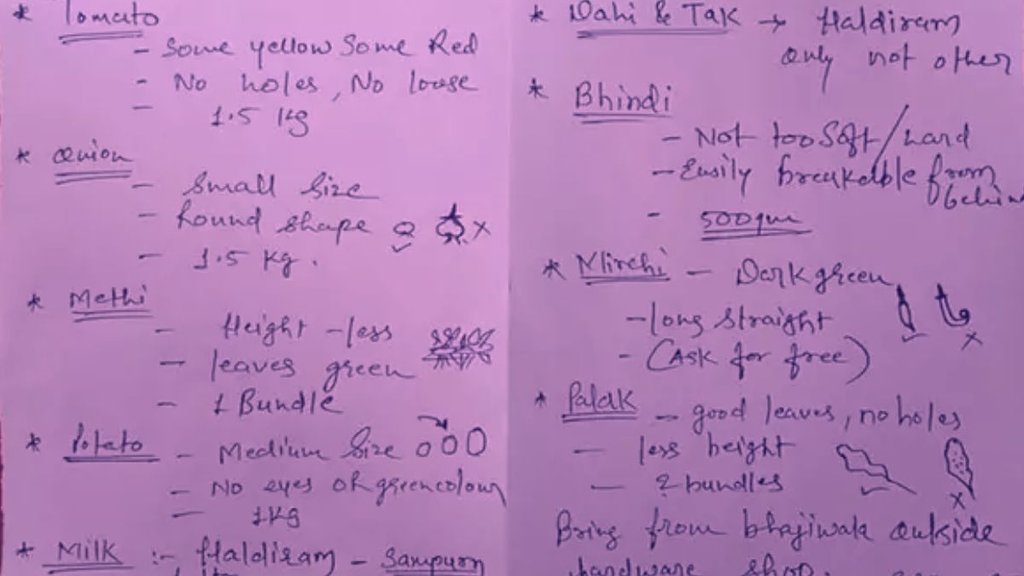 * Tomato
- Some yellow Some Red
- No holes, No loose
- 1.5 kg
* Onion
- Small Size
- Round shape
- 1.5 kg.
* Methi
- Height - less
- leaves green
- 1 Bundle
* Potato - Medium Size
- No eyes OR green colour
- 1kg
* Milk :- Haldiram - Sampurn
* Dahi & Tak → Haldiram
only not other
* Bhindi
- Not too Soft/hard
- Easily breakable from
behind
- 500gm
* Mirchi - Dark green
- long straight
- (Ask for free)
* Palak - good leaves, no holes
- less height
- 2 bundles
Bring from bhajiwala outside
hardware shop.